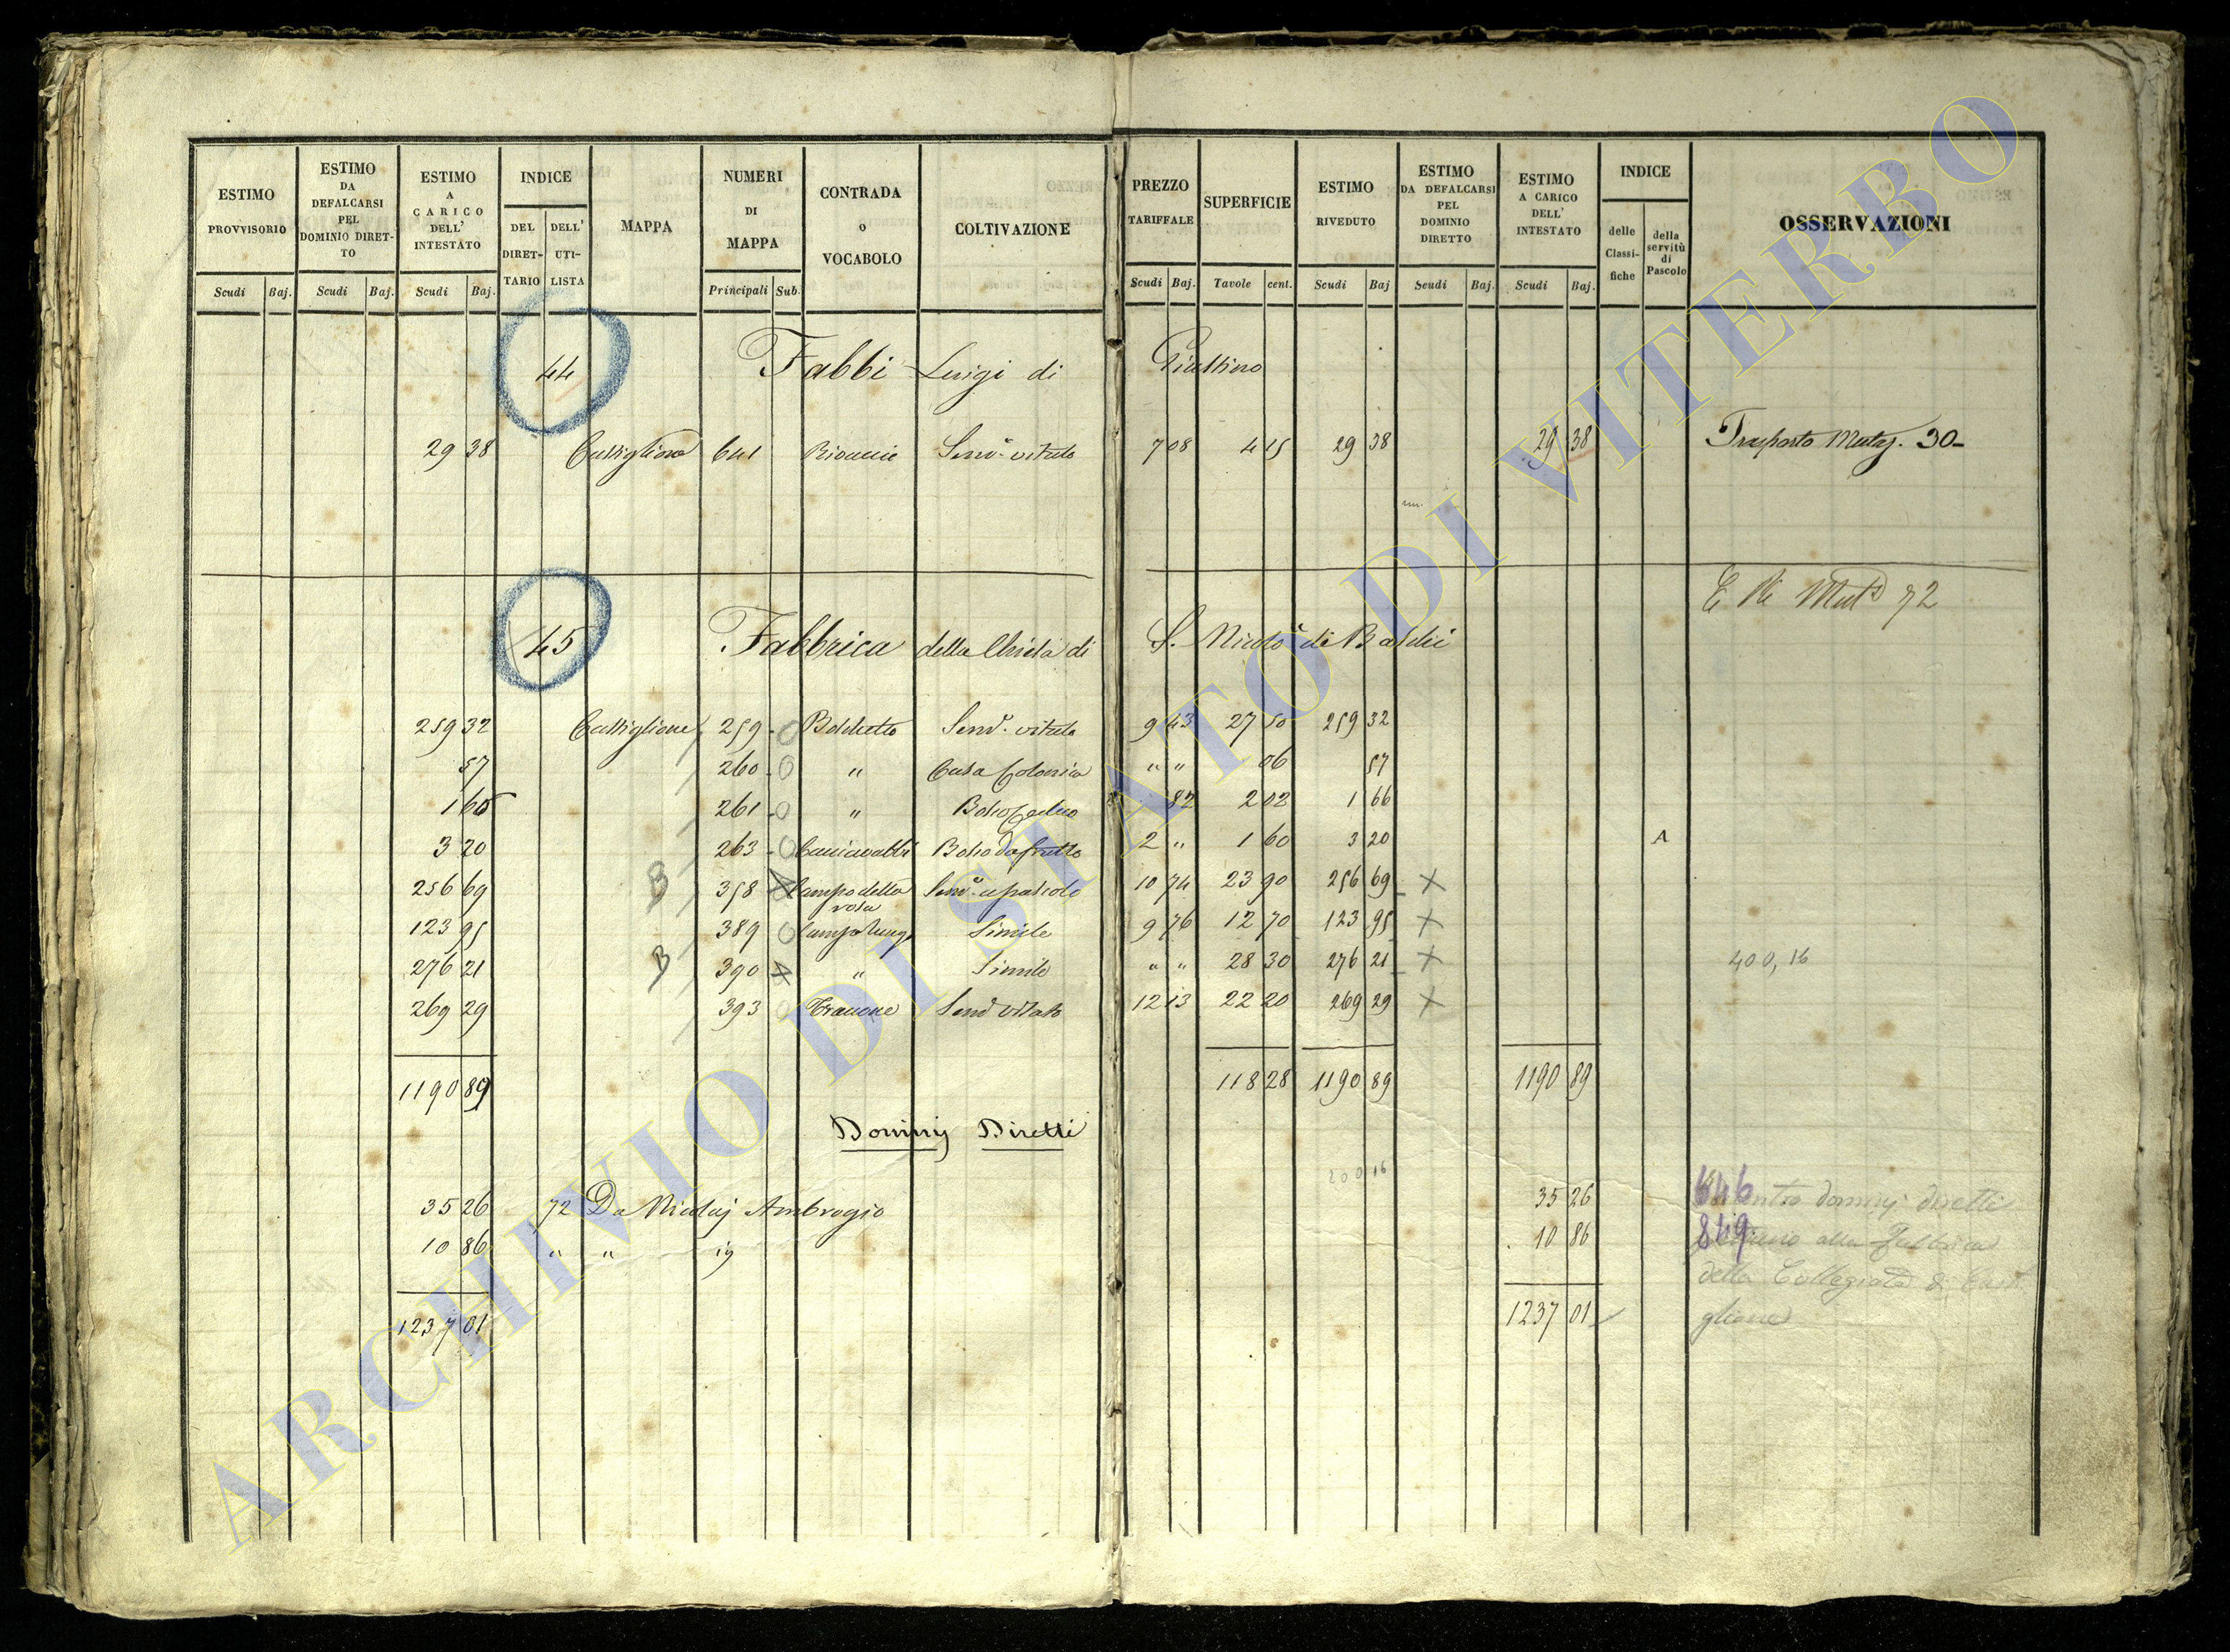 ESTIMO PROVVISORIO
ESTIMO DA DEFALCARSI PEL DOMINIO DIRETTO
ESTIMO A CARICO DELL' INTESTATO
INDICE
DEL DIRETTARIO
DELL' UTILISTA
MAPPA
NUMERI DI MAPPA
CONTRADA o VOCABOLO
COLTIVAZIONE
PREZZO TARIFFALE
SUPERFICIE
ESTIMO RIVEDUTO
ESTIMO DA DEFALCARSI PEL DOMINIO DIRETTO
ESTIMO A CARICO DELL' INTESTATO
INDICE
delle Classifiche
della servitù di Pascolo
OSSERVAZIONI
Scudi Baj. Scudi Baj. Scudi Baj. Principali Sub. Scudi Baj. Tavole cent. Scudi Baj Scudi Baj. Scudi Baj.
44 Fabbi Luigi di
29 38 Castiglione 641 Semvo. vitato 7 08 4 15 29 38 29 38 Trasporto Mutaz. 30
72
45 Fabbrica della Chiesa di S. Nicolò di Bardi
259 32 Castiglione 259 0 Semvo. vitato 9 43 27 50 259 32
57 260 0 " Casa Colonica " " 06 57
1 66 261 0 " Bosco Ceduo 82 2 02 1 66
3 20 263 0 Bosco da frutto 2 " 1 60 3 20 A
256 69 B 358 Campo della rosa Semvo. a pascolo 10 74 23 90 256 69 X
123 95 389 0 Campo lungo Simile 9 76 12 70 123 95 X
276 21 B 390 " Simile " " 28 30 276 21 X 400,16
269 29 393 0 Semvo vitato 12 13 22 20 269 29 X
1190 89 118 28 1190 89 1190 89
Dominj Diretti
400 16
35 26 72 Da Nicolaj Ambrogio 35 26 646 dominj diretti
10 86 " " 10 86 849 alla Fabbrica
della Collegiata di Casti
1237 01 1237 01 glione
ARCHIVIO DI STATO DI VITERBO